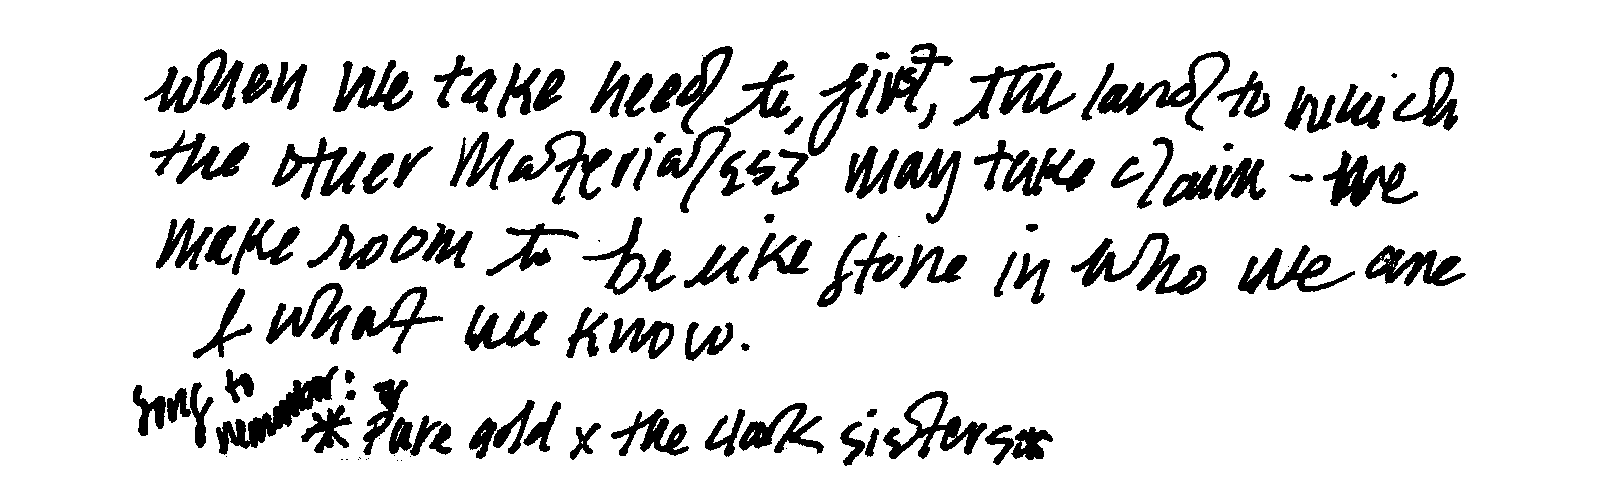 when we take heed to, first, the land to which
the other material[s] may take claim - we
make room to be like stone in who we are
& what we know.
song to remember: * Pure gold x the clark sisters *